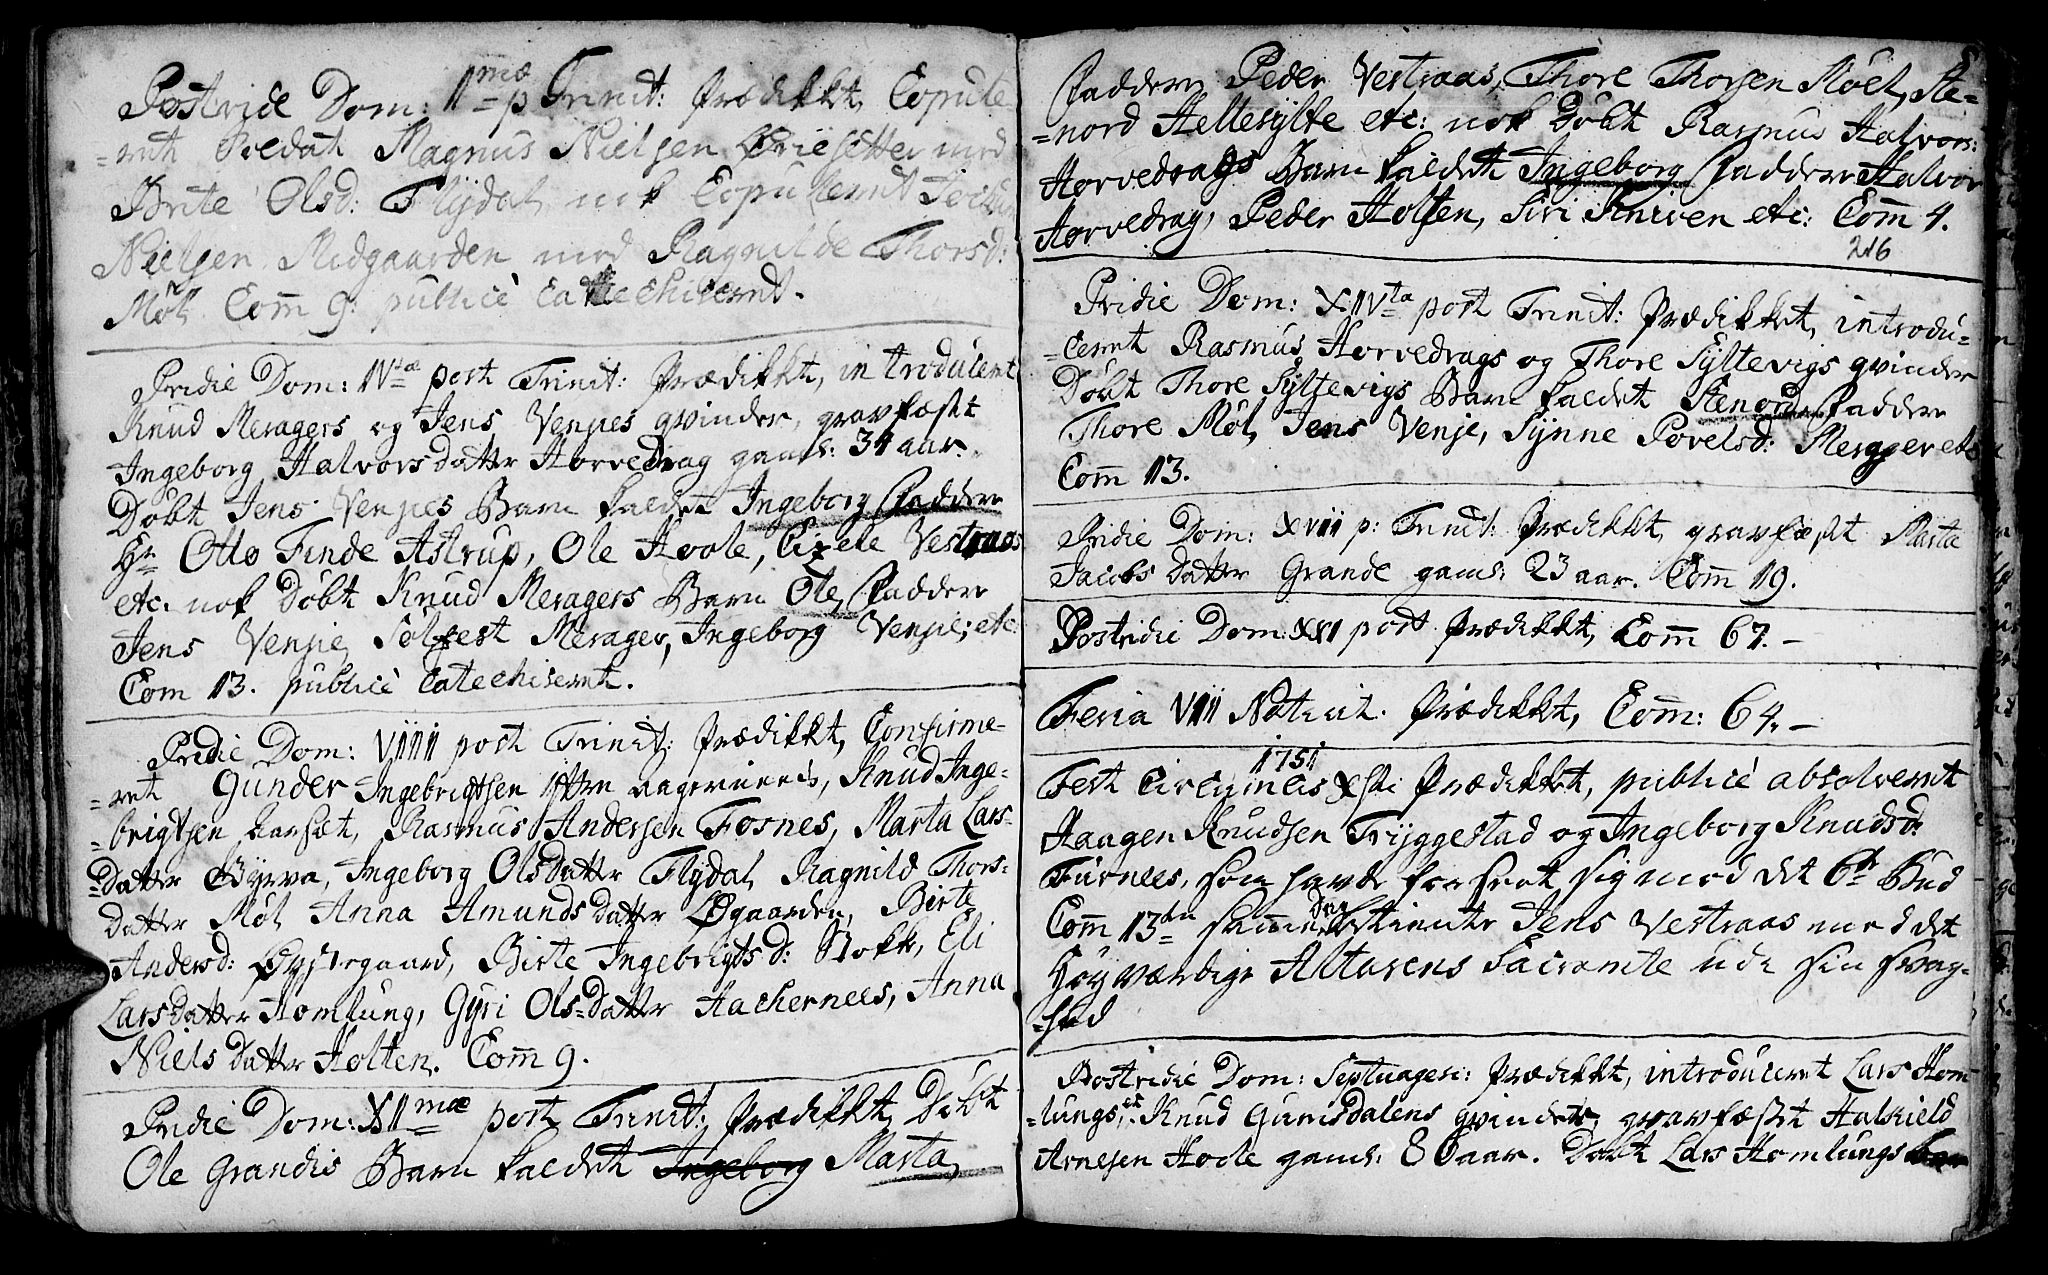 Postridie Dom: 1mæ p Trinit: Prædikket, Copule-
=ret Soldat Magnus Nielsen Øriesetter med
Brite Olsd: Flÿdal, nok Copuleret
Nielsen Nedgaarden med Ragnilde Thorsd:
Möl. Com̄ 9. publicè Catechiseret.
Pridie Dom: IVtæ post Trinit: Prædikket, introduceret
Knud Meragers og Jens Venjes qvinder, gravfæstet
Ingeborg Halvorsdatter Horvedrag gaml: 34 aar.
Döbt Jens Venjes Barn kaldet Ingeborg Faddere
Hr Otto Finde Astrup, Ole Hoole, Cizele Vestraas
etc. nok Döbt Knud Meragers Barn Ole, Faddere
Jens Venje, Solfest Merager, Ingeborg Venjie, etc:
Com 13. publicè Catechiseret.
Pridie Dom: VIIII post Trinit: Prædikket, Confirme-
=ret Gunder Ingebrigtsen, Knud Inge-
=brigtsen Aarsæt, Rasmus Andersen Fosnes, Marta Lars-
=Datter Bÿrva, Ingeborg Olsdatter Flÿdal, Ragnild Thors-
datter Möl, Anna Amundsdatter Øgaarden, Birte
Andersd: Opstegaard, Birte Ingebrigtsd: Stokke, Eli
Larsdatter Homlung, Gÿri Ols=Datter Hachernees, Anna
Nielsdatter Holten. Com̄ 9.
Pridie Dom: XIImæ post Trinit: Prædikket, Döbt
Ole Grandis Barn kaldet Ingeborg Marta,
Faddere Peder Vestraas, Thore Thorsen Möel, Ste-
=nord Hellesÿlte etc: nok Döbt Rasmus Halvors:
Horvedrags Barn kaldet Ingeborg Faddere Halvor
Horvedrag, Peder Holten, Siri Kniven etc: Com̄ 4.
216
Pridie Dom: XIVta post Trinit: Prædikket, introdu-
=ceret Rasmus Horvedrags og Thore Sÿltevigs qvinder
Döbt Thore Sÿltevigs Barn kaldet Stenord, Faddere
Thore Möl, Jens Venje, Sÿnne Povelsd: Merager etc
Com̄ 13.
Pridie Dom: XVIII p: Trinit: Prædikket, gravfæstet Marta
Jacobsdatter Grande gaml: 23 aar. Com̄ 19.
Postridie Dom: XXI post Prædikket, Com̄ 67.–
Feria VIII Nativit. Prædikket, Com̄: 64.–
1751
Fest Circumcis Xsti Prædikket, publicè absolveret
Haagen Knudsen Trÿggestad og Ingeborg Knudsd:
Furnees, som havde forseet sig mod det 6te Bud
Com̄ 13de samme Dag betiente Jens Vestraas med det
Höyværdige Altarens Sacramte udi sin svag-
=hed
Postridie Dom: Septuages: Prædikket, introduceret Lars Hom-
=lungs, et Knud Gunisdalens qvinder, gravfæstet Halkield
Arnesen Hoele gaml: 80 aar. Döbt Lars Homlungs